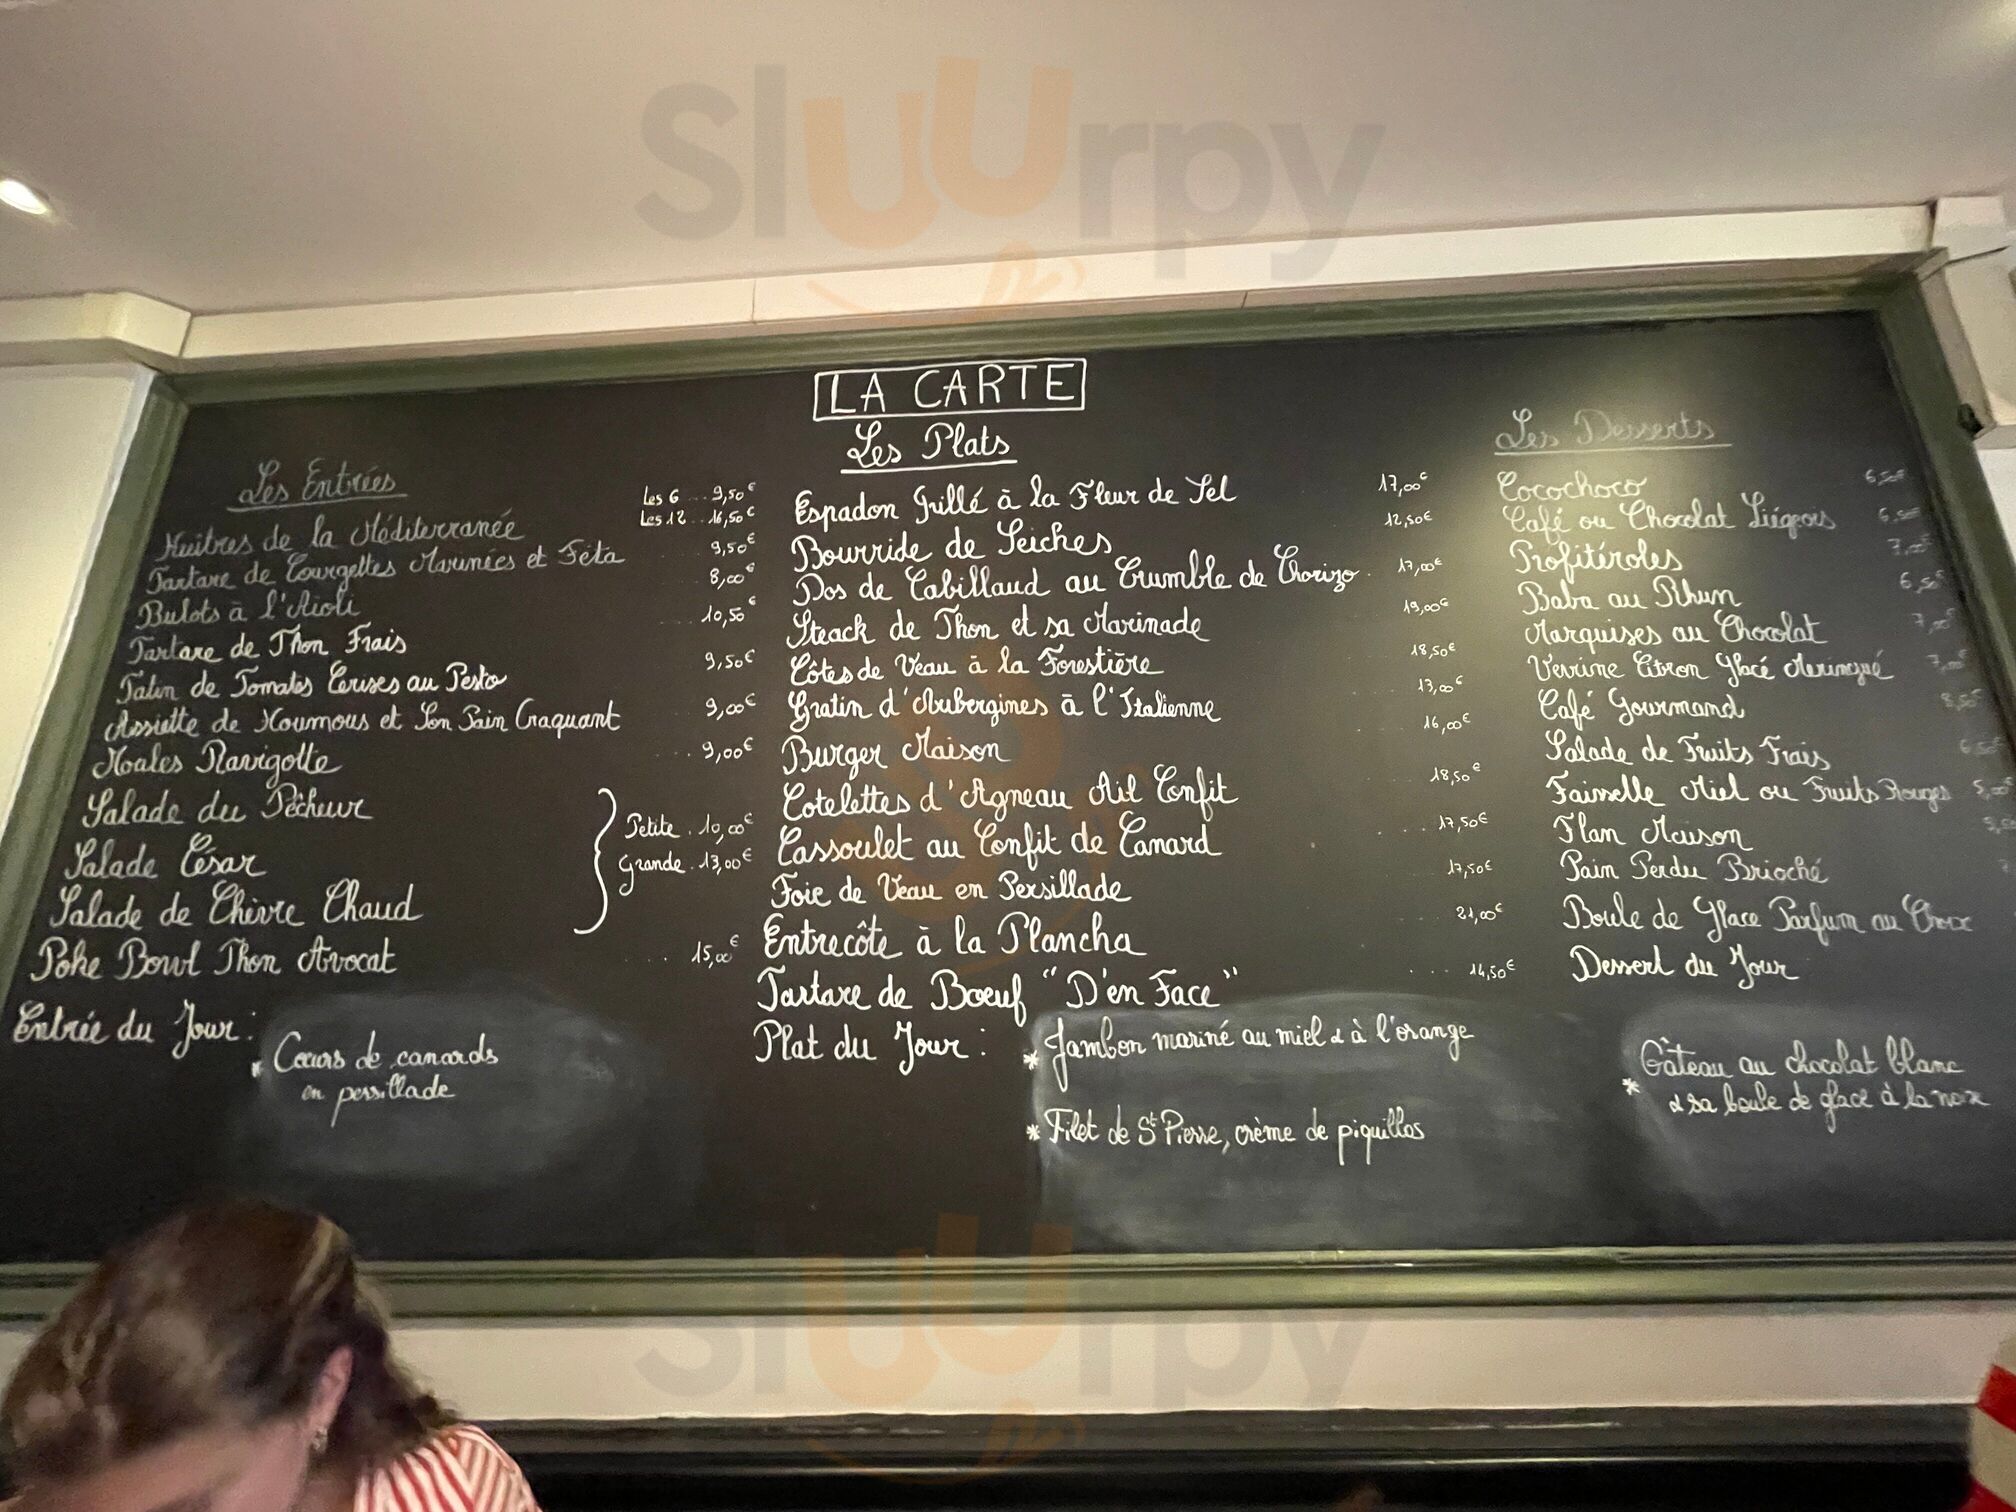 Sluurpy
LA CARTE
Les Entrées
Huîtres de la Méditerranée Les 6 ... 9,50€
Les 12 .. 16,50€
Tartare de Courgettes Marinées et Féta 9,50€
Bulots à l'Aïoli 8,00€
Tartare de Thon Frais 10,50€
Tatin de Tomates Cerises au Pesto 9,50€
Assiette de Houmous et Son Pain Craquant 9,00€
Moules Ravigotte .... 9,00€
Salade du Pêcheur
Salade César
Salade de Chèvre Chaud
Petite . 10,00€
Grande . 13,00€
Poke Bowl Thon Avocat .... 15,00€
Entrée du Jour :
* Cœurs de canards
en persillade
Les Plats
Espadon Grillé à la Fleur de Sel 17,00€
Bourride de Seiches 12,50€
Dos de Cabillaud au Crumble de Chorizo . 17,00€
Steack de Thon et sa Marinade 19,00€
Côtes de Veau à la Forestière 18,50€
Gratin d'Aubergines à l'Italienne 13,00€
Burger Maison 16,00€
Cotelettes d'Agneau Ail Confit 18,50€
Cassoulet au Confit de Canard 17,50€
Foie de Veau en Persillade 17,50€
Entrecôte à la Plancha 21,00€
Tartare de Boeuf "D'en Face" .... 14,50€
Plat du Jour :
* Jambon mariné au miel & à l'orange
* Filet de St Pierre, crème de piquillos
Les Desserts
Cocochoco 6,50€
Café ou Chocolat Liégeois 6,50€
Profitéroles 7,00€
Baba au Rhum 6,50€
Marquises au Chocolat 7,00€
Verrine Citron Glacé Meringué 7,00€
Café Gourmand 8,50€
Salade de Fruits Frais 6,50€
Faisselle Miel ou Fruits Rouges 5,00€
Flan Maison
Pain Perdu Brioché
Boule de Glace Parfum au Choix
Dessert du Jour
* Gâteau au chocolat blanc
& sa boule de glace à la noix
Sluurpy